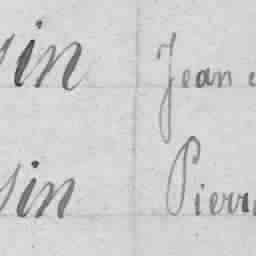 sin Jean
sin Pierr